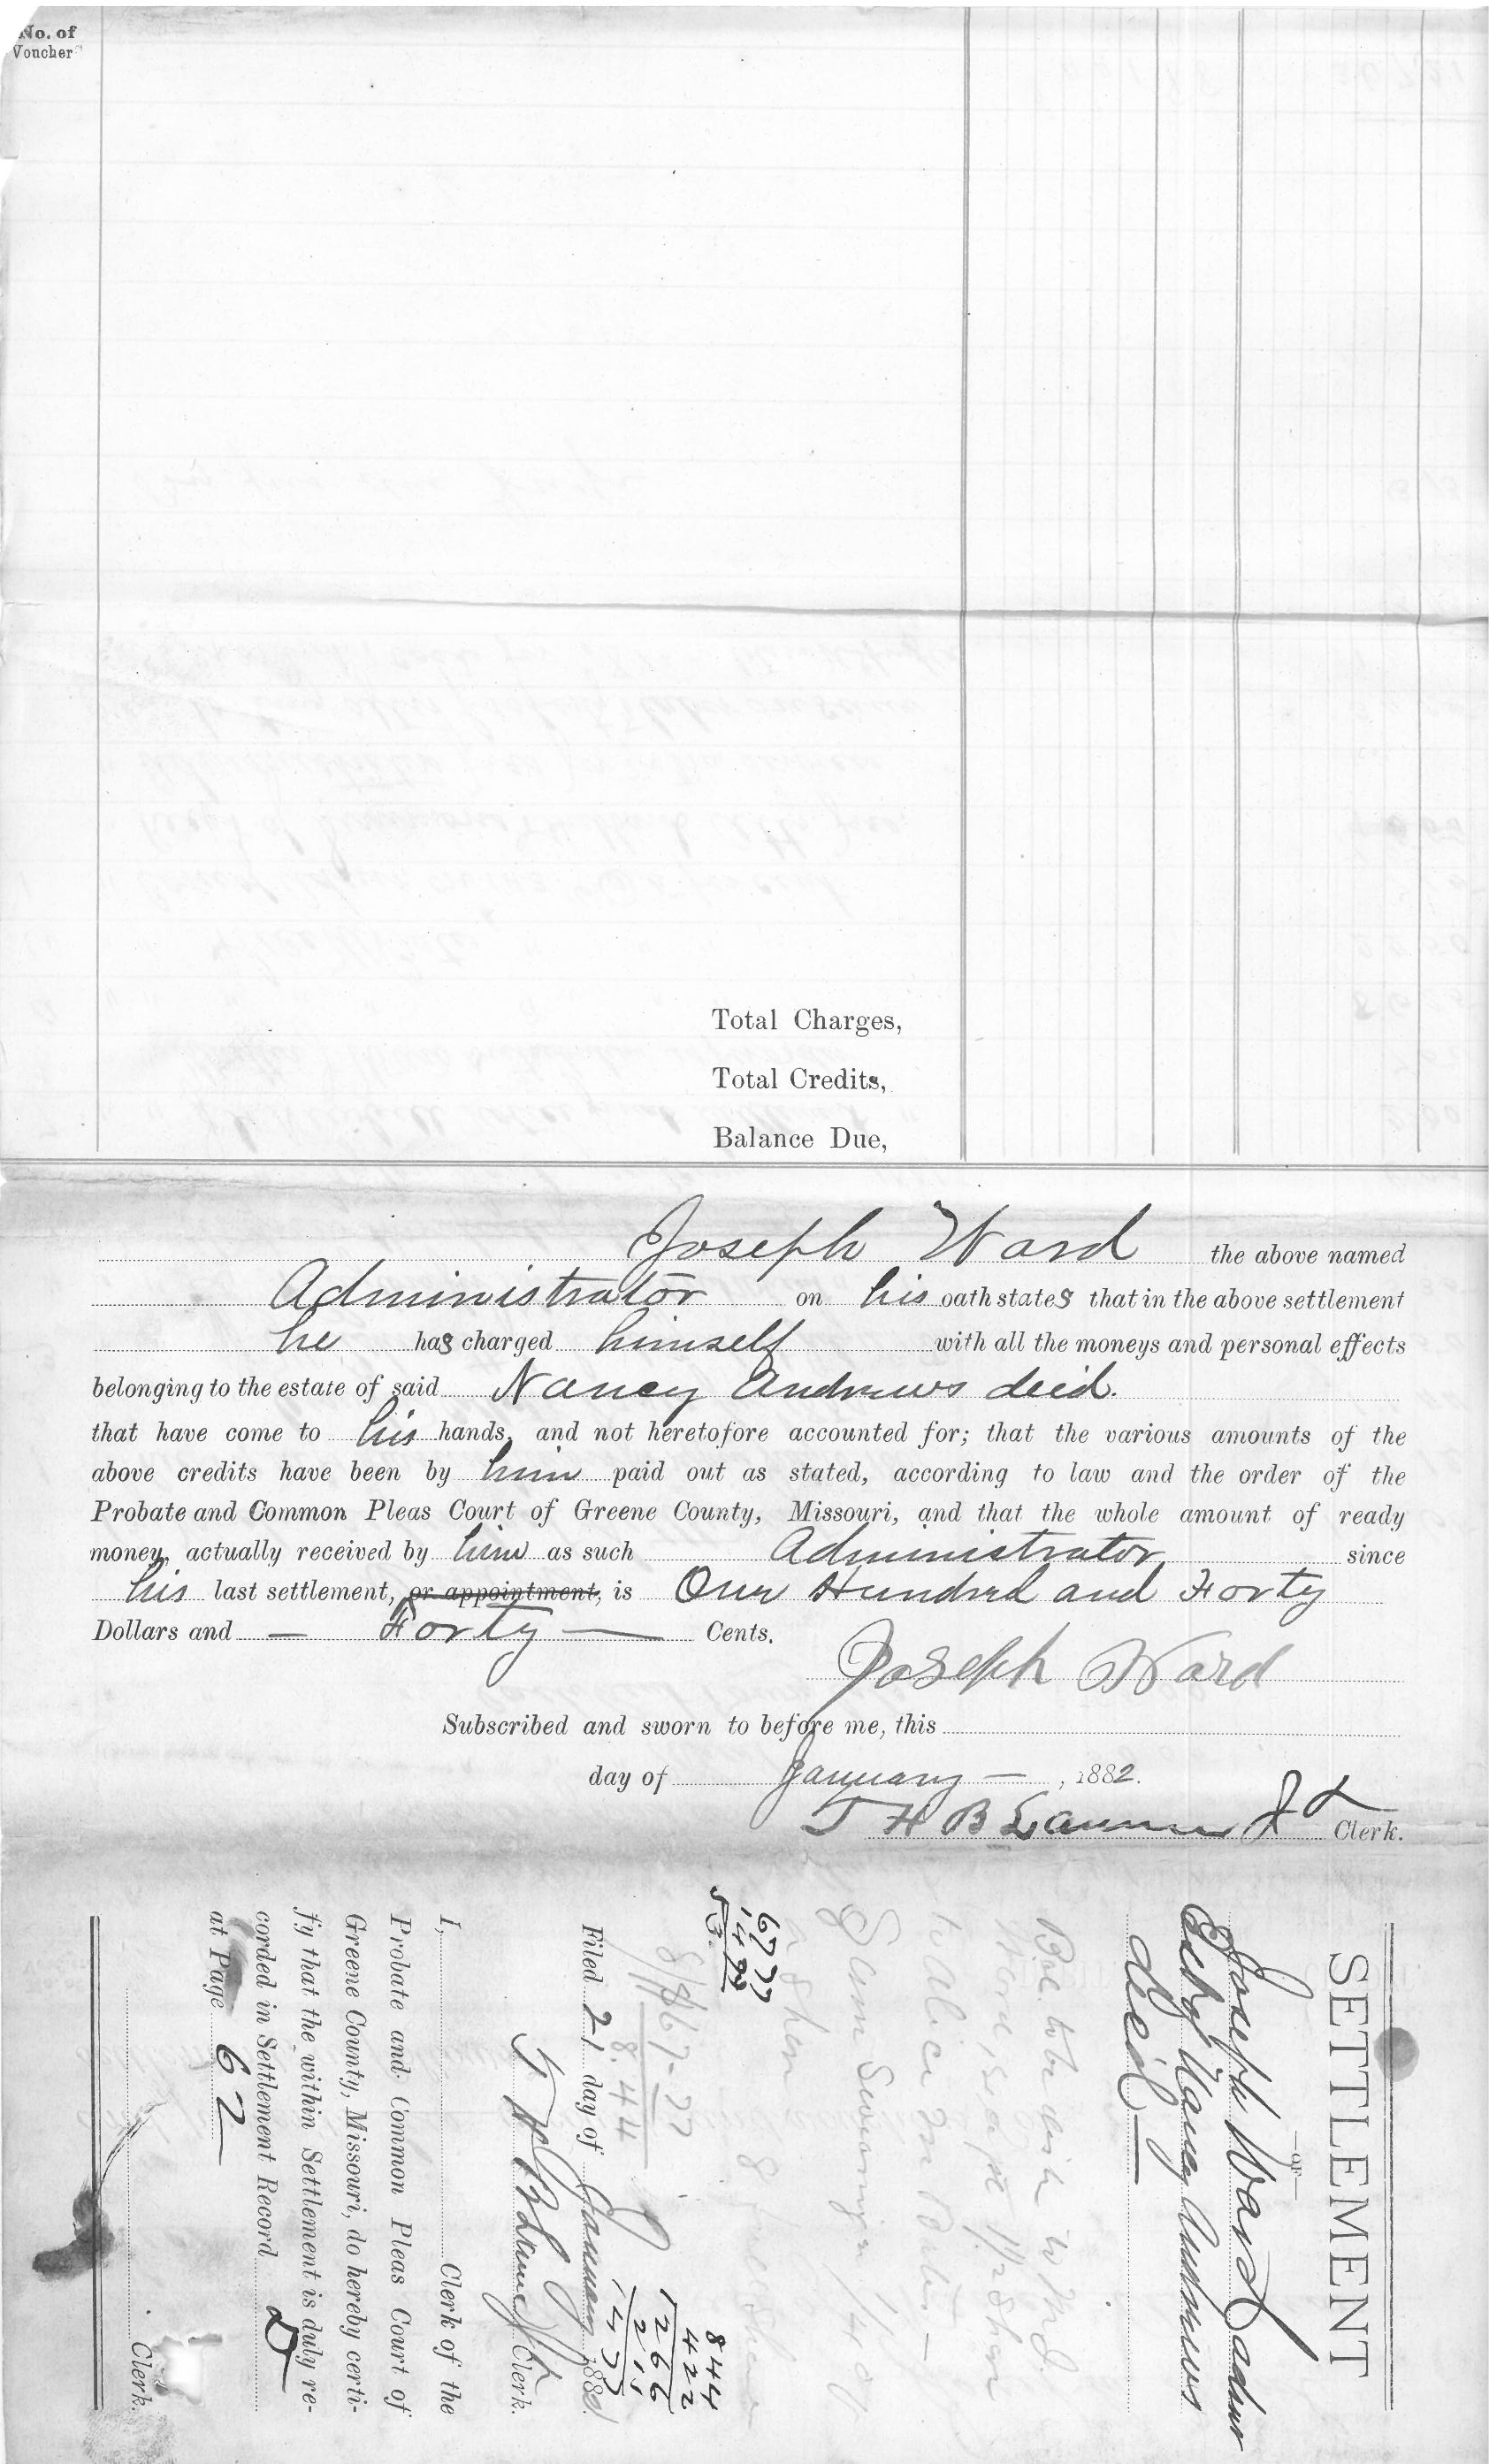 No. of
Voucher
Total Charges,
Total Credits,
Balance Due,
Joseph Ward the above named
Administrator on his oath states that in the above settlement
he has charged himself with all the moneys and personal effects
belonging to the estate of said Nancy Andrews dec'd.
that have come to his hands, and not heretofore accounted for; that the various amounts of the
above credits have been by him paid out as stated, according to law and the order of the
Probate and Common Pleas Court of Greene County, Missouri, and that the whole amount of ready
money, actually received by him as such Administrator since
his last settlement, or appointment, is One Hundred and Forty
Dollars and — Forty — Cents.
Joseph Ward
Subscribed and sworn to before me, this
day of January — , 1882.
T H B Clerk.
SETTLEMENT
—OF—
Joseph Ward admr
Est of Nancy Andrews
dec'd —
844
422
1266
211
1477
6777
Filed 21 day of January 188
T H B Clerk.
I, Clerk of the
Probate and Common Pleas Court of
Greene County, Missouri, do hereby certi-
fy that the within Settlement is duly re-
corded in Settlement Record D
at Page 62
Clerk.